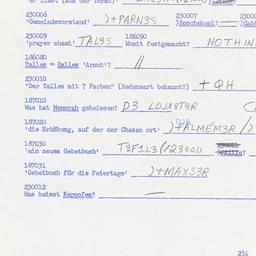 230006 230007
'Gemeindevorstand' )+PARN3S )Spechekool?
230009 186090
'prayer shawl' TAL3S Womit festgemacht? NOTHIN
186080
Talles = Dalles 'Armut'? //
230010
"Der Talles mit 7 Farben" (Redensart bekannt?) + QH
187010
Was hat Menorah geheissen? D3 LOJX8T3R
187020
'die Erhöhung, auf der der Chasen ort' )+ALMEM3R /
187030
'ein neues Gebetbuch' T3F1L3 // 230011
187031
'Gebetbuch für die Feiertage' )+MAXS3R
230012
Was heisst Keroofes? —
231